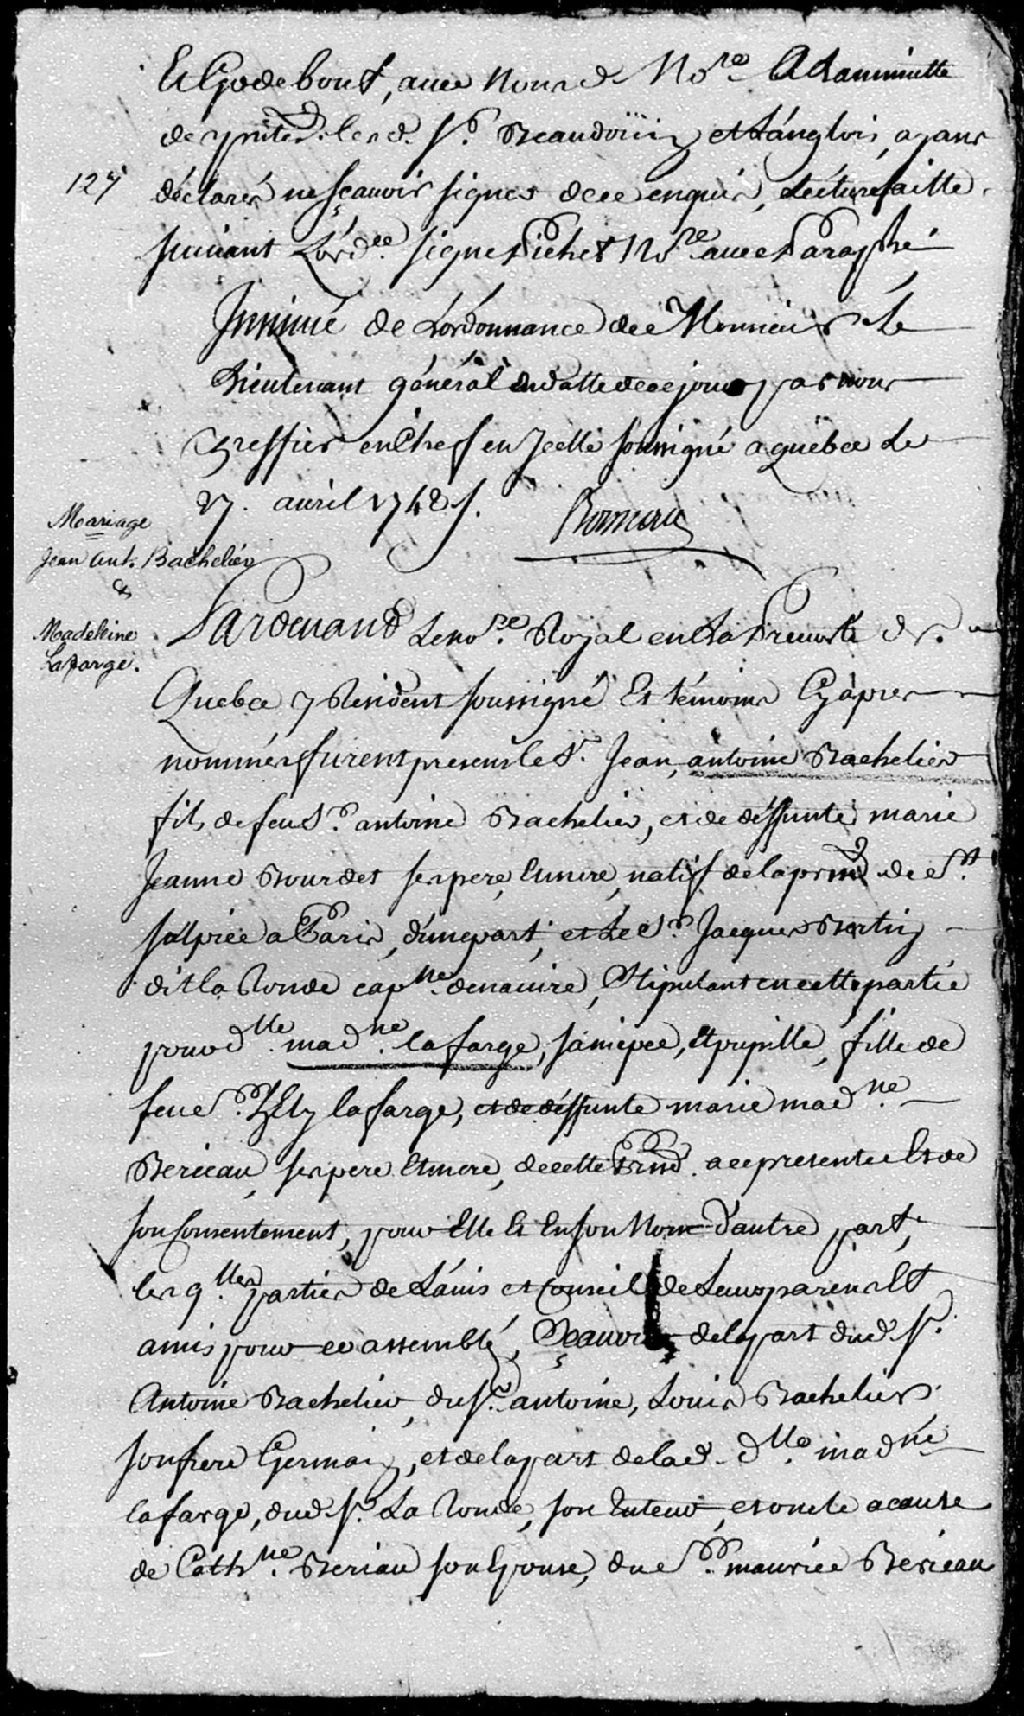 Et Godebout, avec Nousd. No.re A La minutte
des pntes. lesd. Srs. Beaudoüin et Langlois, ayans
124
déclarés ne sçauoir signer de ce enquis, Lecture faitte
suiuant L'ord.ce signé Pichet No.re auec Paraphe
Jnsinué de Lordonnance de Monsieur Le
Lieutenant général en datte de ce jour par nous
Greffier en Chef en Jcelle soussigné a québec Le
27. auril 1748 /.
Mariage
Jean Ant. Bachelier
&
Madeleine
Lafarge.
Pardeuant Le no.re Royal en La Preuosté de
Quebec y Resident soussigné Et témoins Cy apres
nommés furent presens le Sr. Jean, antoine Bachelier
fils de feu Sr. antoine Bachelier, et de déffunte marie
Jeanne Bourdet ses pere, Et mere, natif de la parsse de St.
sulpice a Paris, d'une part, et Le Sr. Jacques Bertin
dit la Ronde cap.ne de nauire, Stipulant en cette partie
pour d.lle mad.ne lafarge, sa niepce, Et pupille, fille de
feu Sr. Ely lafarge, et de déffunte marie mad.ne
Berieau, ses pere Et mere, de cette parsse. a ce presente Et de
son Consentement, pour Elle Et En son Nom d'autre part,
lesq.lles parties de Lauis et Conseil de Leurs parens Et
amis pour ce assemblé, Sçauoir de la part dud. Sr.
Antoine Bachelier, du Sr. antoine, Louis Bachelier
son frere Germain, et de la part de lad. d.lle mad.ne
lafarge, dud. Sr. La Ronde, son tuteur, et oncle a cause
de Cath.ne Beriau son Epouse, du Sr. maurice Berieau